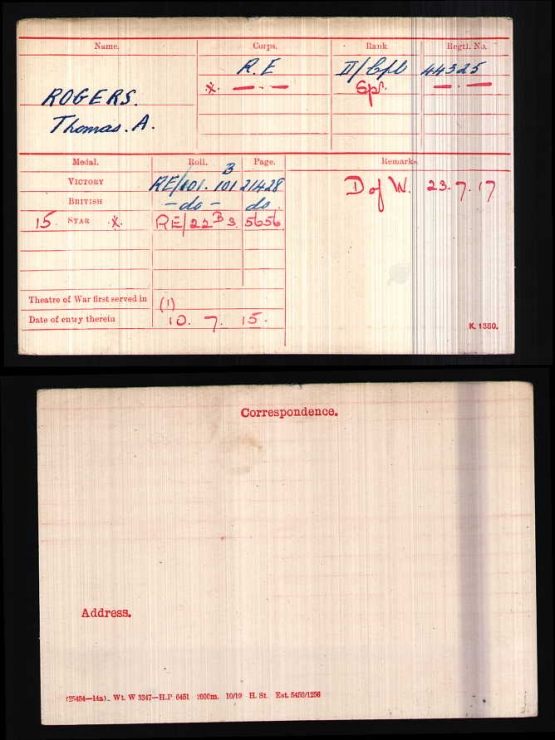 Name. Corps. Rank Regtl. No.
R.E II/Cpl 44325
ROGERS. x. — . — Spr. — . —
Thomas. A.
Medal. Roll. Page. Remarks.
VICTORY RE/101. 101 B 21428 D of W. 23.7.17
BRITISH - do - do.
15 STAR x. RE/22 B 3 5656
Theatre of War first served in (1)
Date of entry therein 10. 7. 15.
K. 1380.
Correspondence.
Address.
Wt. W 3347—H.P 6451 2000m. 10/19 H. St.